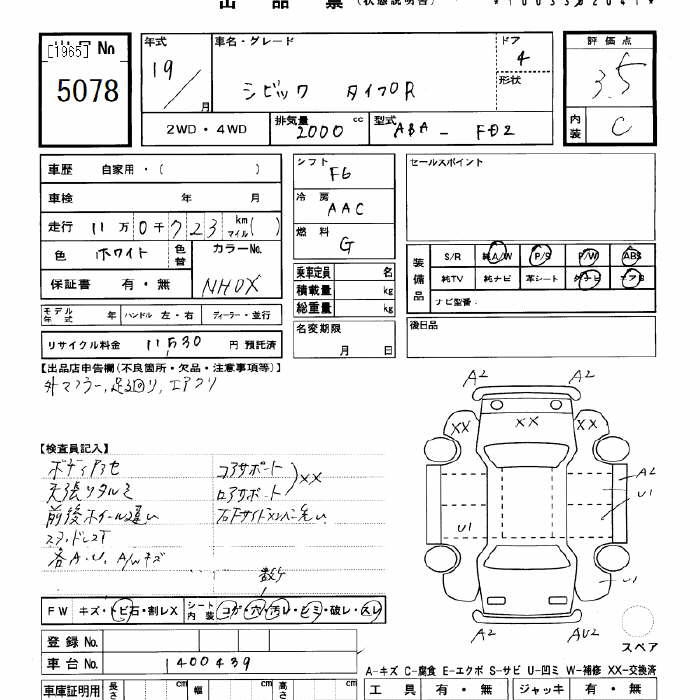 出品票 (状態説明書)
[1965] 出品 No
5078
年式 19 / 月
車名・グレード
シビック タイプR
ドア 4
形状
評価点 3.5
内装 C
2WD・4WD
排気量 2000 cc
型式 ABA - FD2
車歴 自家用・( )
車検 年 月
走行 11万0千723 km マイル( )
色 ホワイト 色替
カラーNo. NH0X
保証書 有・無
シフト F6
冷房 AAC
燃料 G
乗車定員 名
積載量 kg
総重量 kg
セールスポイント
装備品
S/R 純A/W P/S P/W ABS
純TV 純ナビ 革シート 外ナビ エアB
ナビ型番・
モデル年式 年 ハンドル 左・右 ディーラー・並行
リサイクル料金 11,530 円 預託済
名変期限 月 日
後日品
【出品店申告欄(不良箇所・欠品・注意事項等)】
外マフラー, 足廻り, エアクリ
A2 A2
XX XX XX
【検査員記入】
ボディアセ コアサポート
天張リタルミ ロアサポート )XX
前後ホイール違い
各A.U, A/Wキズ
数ヶ
A2
U1
U1
U1
A2 AU2
FW キズ・トビ石・割レX
シート内装 コゲ・穴・汚レ・シミ・破レ・スレ
スペア
登録 No.
車台 No. 1400439
A-キズ C-腐食 E-エクボ S-サビ U-凹ミ W-補修 XX-交換済
車庫証明用 長さ cm 幅 cm 高さ cm
工具 有・無 ジャッキ 有・無